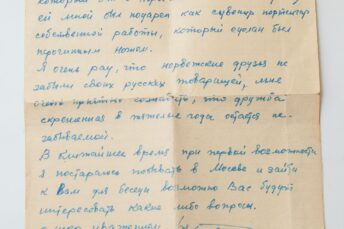 ей мной был подарен как сувенир портсигар
собственной работы, который сделан был
перочинным ножом.
Я очень рад, что норвежские друзья не
забыли своих русских товарищей, мне
очень приятно сознавать, что дружба
скрепленная в тяжелые года остается не-
забываемой.
В ближайшее время при первой возможности
я постараюсь побывать в Москве и зайти
к Вам для беседы возможно Вас будут
интересовать какие либо вопросы.
уважением